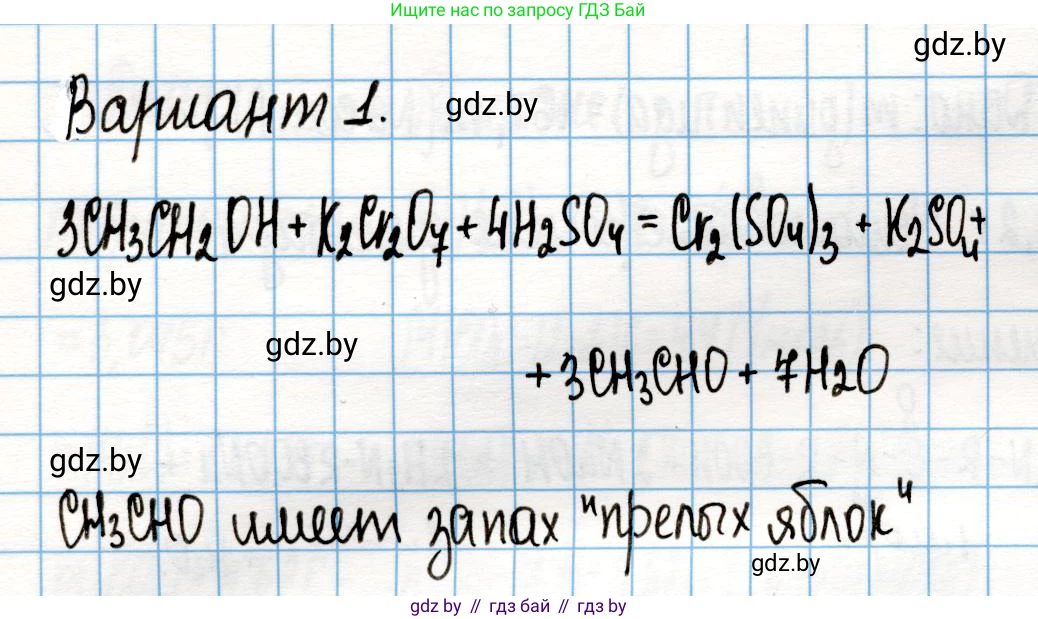 Ищите нас по запросу ГДЗ Бай
gdz.by
Вариант 1.
gdz.by
3CH₃CH₂OH + K₂Cr₂O₇ + 4H₂SO₄ = Cr₂(SO₄)₃ + K₂SO₄ +
gdz.by
gdz.by
+ 3CH₃CHO + 7H₂O
gdz.by
CH₃CHO имеет запах "прелых яблок"
gdz.by
gdz.by // гдз бай // gdz by